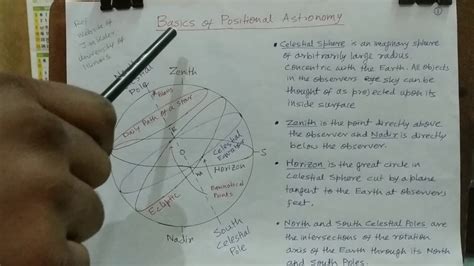 Basics of Positional Astronomy
Ref
website of
University of
Zenith
Pole
Daily Path of a Star
Celestial
Equator
Horizon
Ecliptic
Equinoctial
Points
S
Nadir
South
Celestial
Pole
• Celestial Sphere is an imaginary sphere
of arbitrarily large radius.
Concentric with the Earth. All objects
in the observers sky can be
thought of as projected upon its
inside surface
• Zenith is the point directly above
the observer and Nadir is directly
below the observer.
• Horizon is the great circle in
Celestial sphere cut by a plane
tangent to the Earth at observers
feet.
• North and South Celestial Poles are
the intersections of the rotation
axis of the Earth through its North
and South Poles.